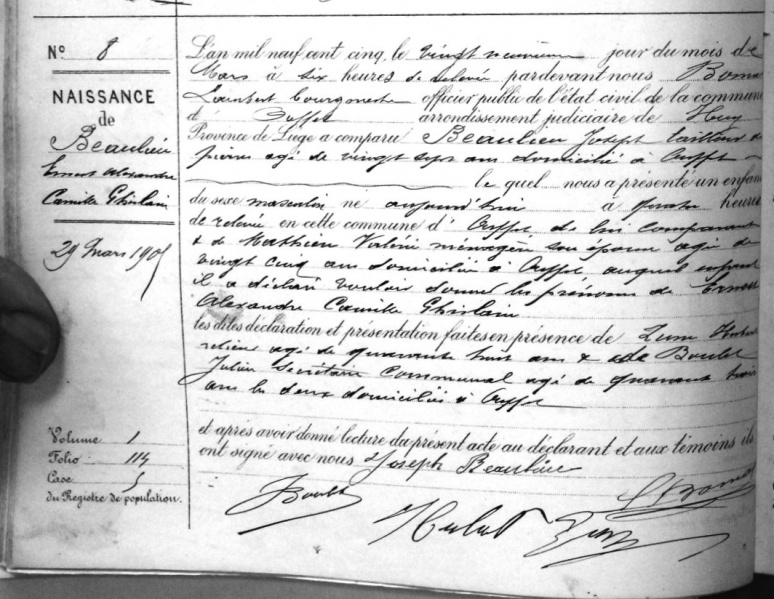 N° 8
NAISSANCE
de
Beaulieu
Ernest Alexandre
Camille Ghislain
29 mars 1905
Volume 1
Folio 114
Case 5
du Registre de population.
L'an mil neuf cent cinq, le vingt neuvième jour du mois de
Mars à six heures de relevée pardevant nous
Lambert bourgmestre officier public de l'état civil de la commune
d' Ouffet arrondissement judiciaire de Huy
Province de Liège a comparu Beaulieu Joseph tailleur de
pierres agé de vingt sept ans domicilié à Ouffet
le quel nous a présenté un enfant
du sexe masculin né aujourd'hui à quatre heures
de relevée en cette commune d' Ouffet de lui comparant
& de Mathieu ménagère son épouse agée de
vingt cinq ans domiciliée à Ouffet auquel enfant
il a déclaré vouloir donner les prénoms de Ernest
Alexandre Camille Ghislain
les dites déclaration et présentation faites en présence de
agé de quarante huit ans & de Boulet
Julien Secrétaire Communal agé de quarante trois
ans les deux domiciliés à Ouffet
et après avoir donné lecture du présent acte au déclarant et aux témoins ils
ont signé avec nous Joseph Beaulieu